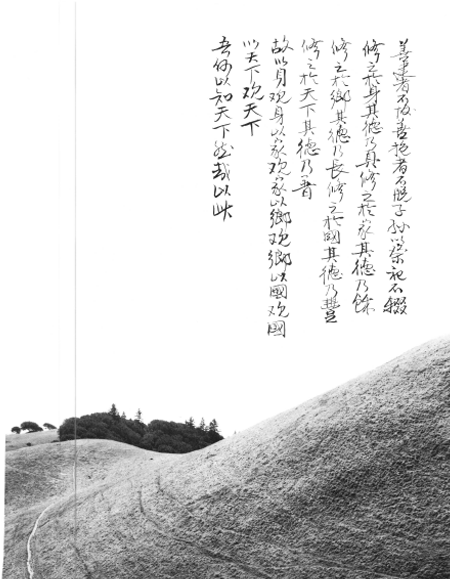 善建者不拔善抱者不脫子孫以祭祀不輟
修之於身其德乃真修之於家其德乃餘
修之於鄉其德乃長修之於國其德乃豐
修之於天下其德乃普
故以身观身以家观家以鄉观鄉以國观國
以天下观天下
吾何以知天下然哉以此